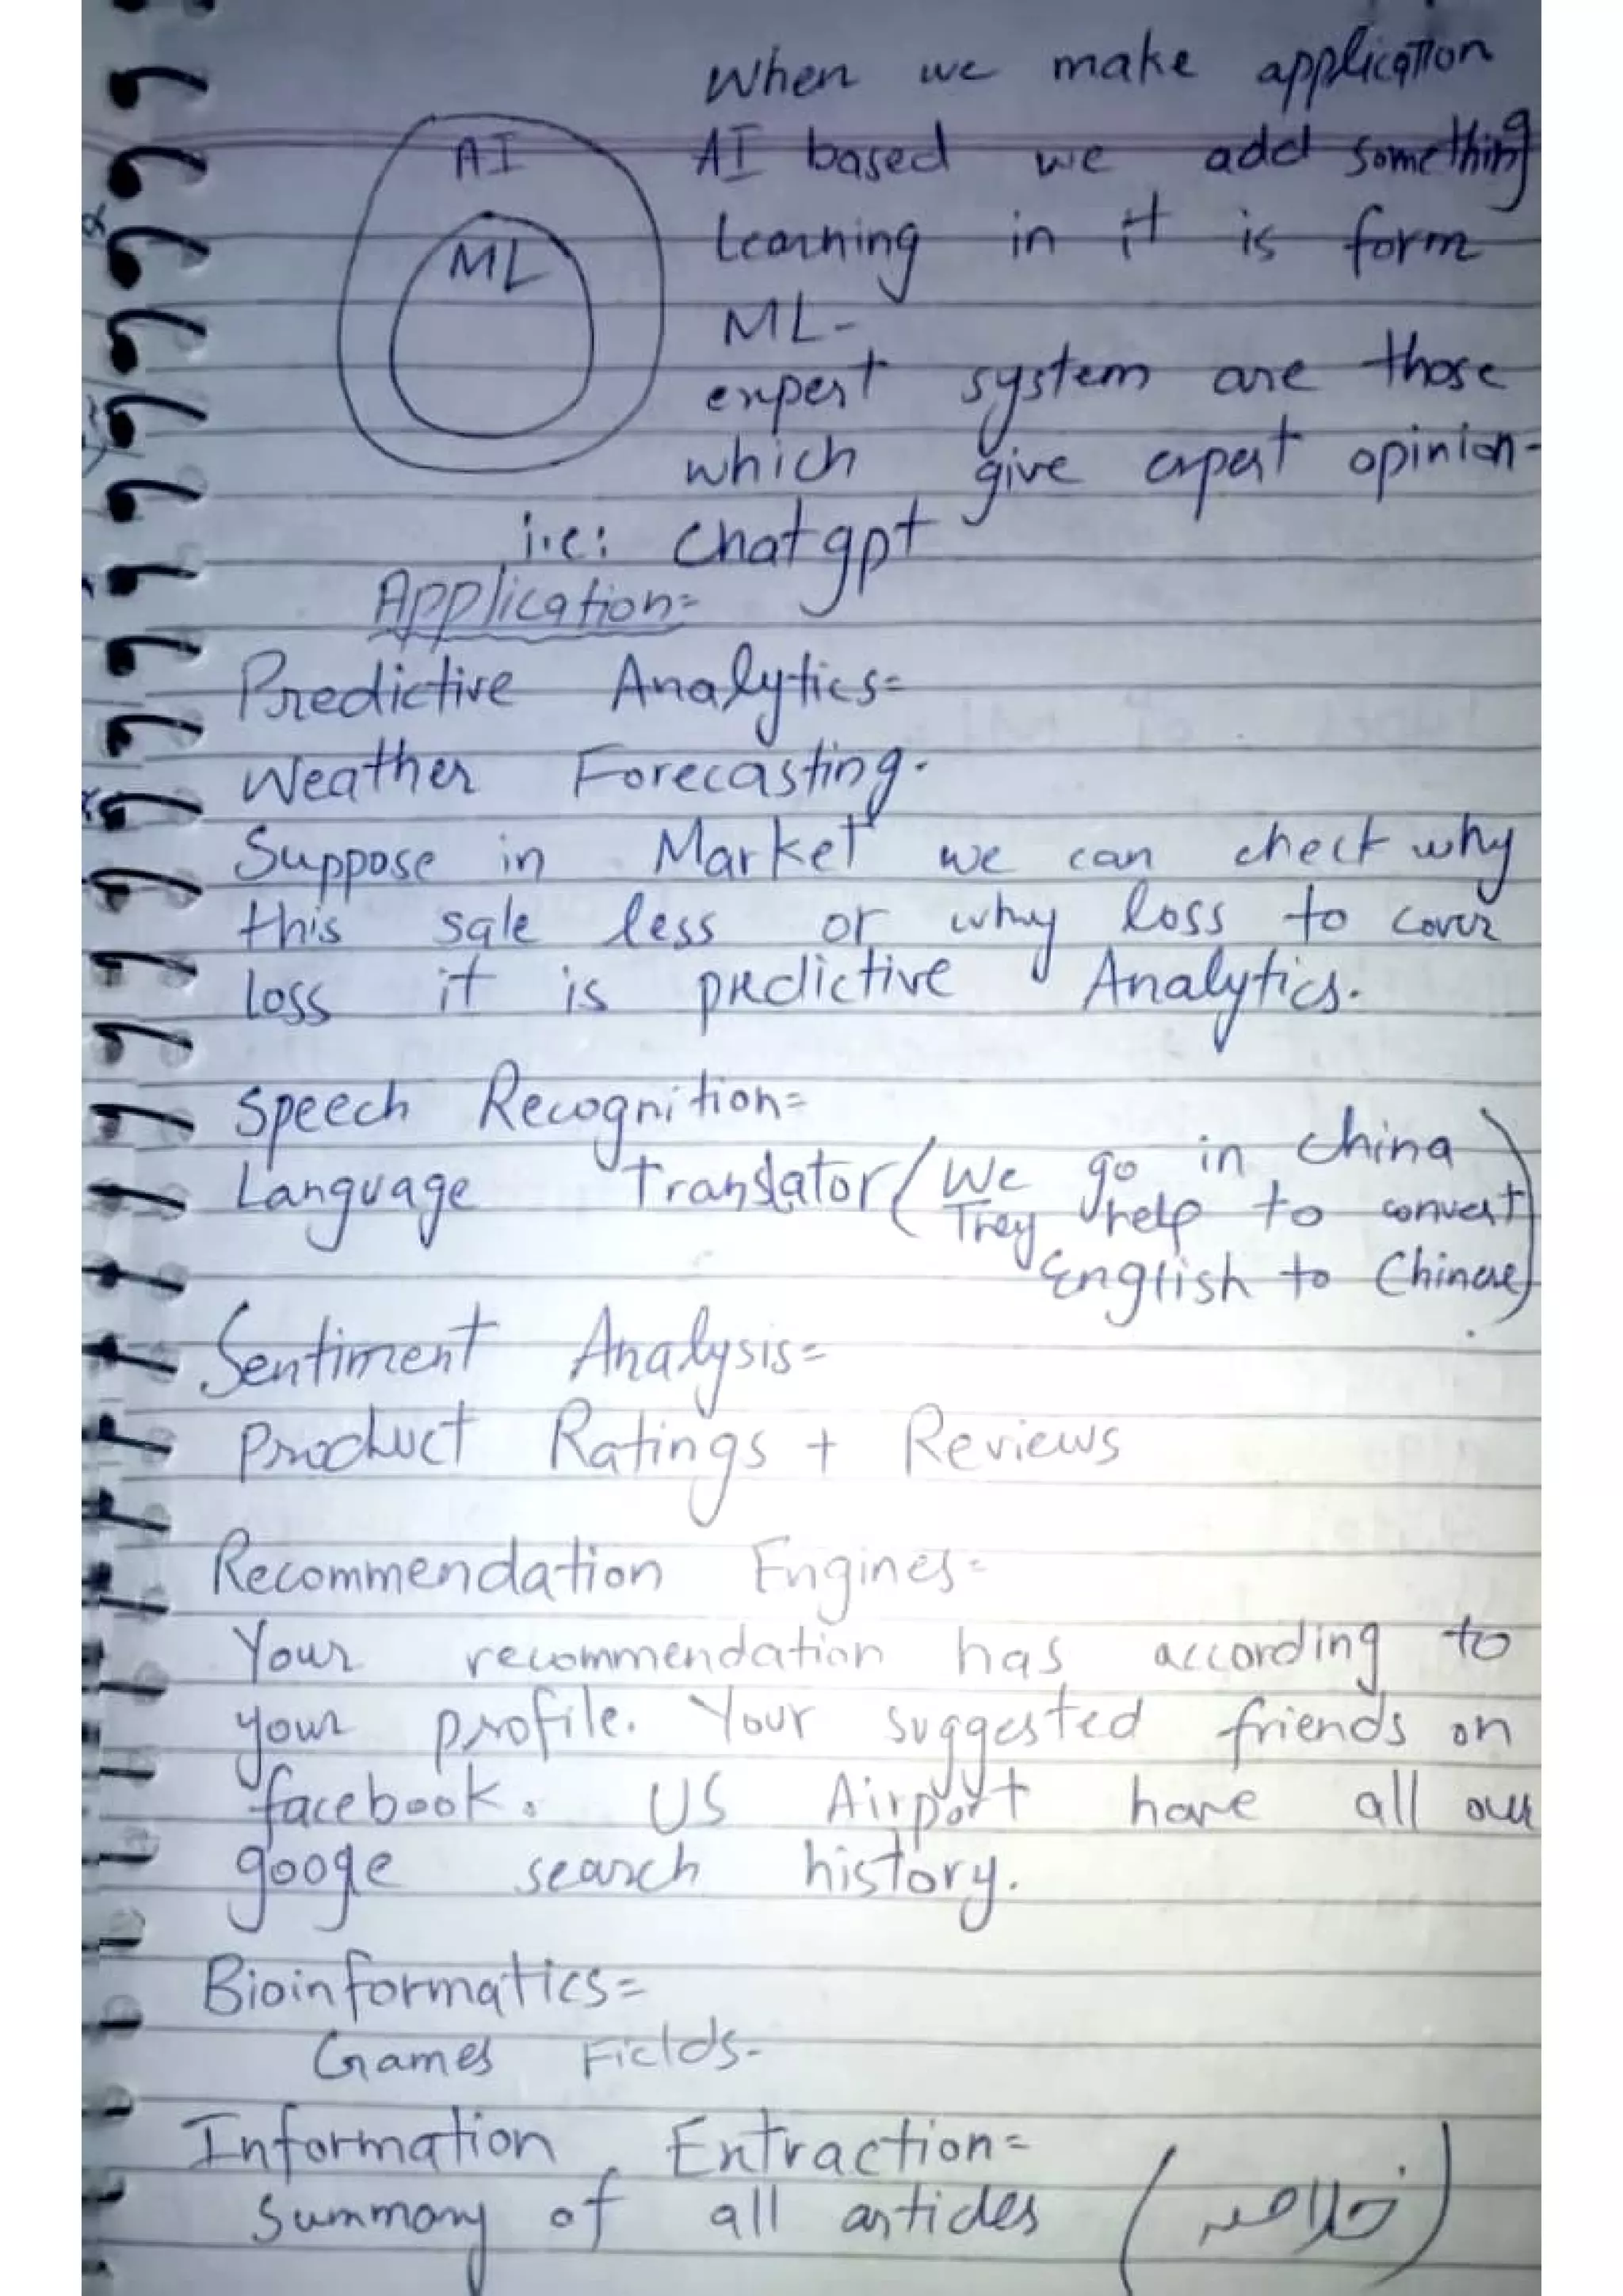 When we make application
AI
AI based we add something
ML
Learning in it is form
ML-
expert system are those
which give expert opinion-
i.e: Chatgpt
Application=
Predictive Analytics=
Weather Forecasting.
Suppose in Market we can check why
this sale less or why loss to cover
loss it is predictive Analytics.
Speech Recognition=
Language Translator (We go in China
They help to convert
English to Chinese)
Sentiment Analysis=
Product Ratings + Reviews
Recommendation Engines=
Your recommendation has according to
your profile. Your suggested friends on
facebook. US Airport have all our
googe search history.
Bioinformatics=
Games Fields-
Information Extraction=
Summary of all articles (خلاصہ)